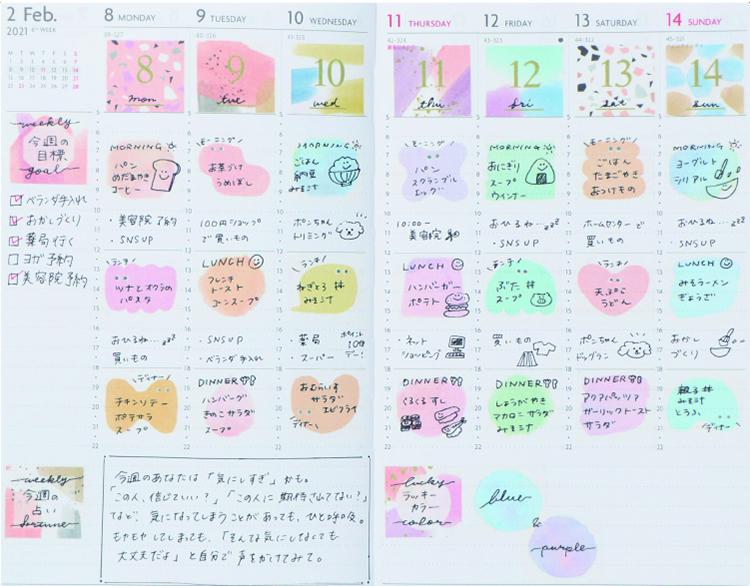 2 Feb.
2021 6th WEEK
M T W T F S S
1 2 3 4 5 6 7
8 9 10 11 12 13 14
15 16 17 18 19 20 21
22 23 24 25 26 27 28
weekly
今週の
目標
goal
ベランダ手入れ
おかしづくり
薬局行く
ヨガ予約
美容院予約
8 MONDAY
39-327
8
mon
MORNING
パン
めだまやき
コーヒー
・美容院予約
・SNS UP
ランチ
ツナとオクラの
パスタ
おひるね…zzz
買いもの
ディナー
チキンソテー
ポテサラ
スープ
9 TUESDAY
40-326
9
tue
モーニング
お茶づけ
うめぼし
100円ショップ
で買いもの
LUNCH
フレンチ
トースト
コーンスープ
・SNS UP
・ベランダ手入れ
DINNER
ハンバーグ
きのこサラダ
スープ
10 WEDNESDAY
41-325
10
wed
MORNING
ごはん
納豆
みそ汁
ポンちゃん
トリミング
ランチ
ねぎとろ丼
みそ汁
・薬局
・スーパー
ポイント
10倍
デー!
おむらいす
サラダ
エビフライ
ディナー
11 THURSDAY
42-324
11
thu
モーニング
パン
スクランブル
エッグ
10:00~
美容院
LUNCH
ハンバーガー
ポテト
・ネット
ショッピング
DINNER
くるくるすし
12 FRIDAY
43-323
12
fri
MORNING
おにぎり
スープ
ウインナー
おひるね…zzz
・SNS UP
ランチ
ぶた丼
スープ
買いもの
DINNER
しょうがやき
マカロニサラダ
みそ汁
13 SATURDAY
44-322
13
sat
モーニング
ごはん
たまごやき
おつけもの
ホームセンターで
買いもの
ランチ
天ぷら
うどん
ポンちゃん
ドッグラン
DINNER
アクアパッツァ
ガーリックトースト
サラダ
14 SUNDAY
45-321
14
sun
MORNING
ヨーグルト
シリアル
おひるね…zzz
・SNS UP
LUNCH
みそラーメン
ぎょうざ
おかし
づくり
親子丼
みそ汁
とうふ
ディナー
weekly
今週の
占い
fortune
今週のあなたは「気にしすぎ」かも。
「この人、信じていい?」「この人に期待されてない?」
など、気になってしまうことがあっても、ひと呼吸。
もやもやしてしまっても、「そんな気にしなくても
大丈夫だよ」と自分で声をかけてみて。
lucky
ラッキー
カラー
color
blue
&
purple